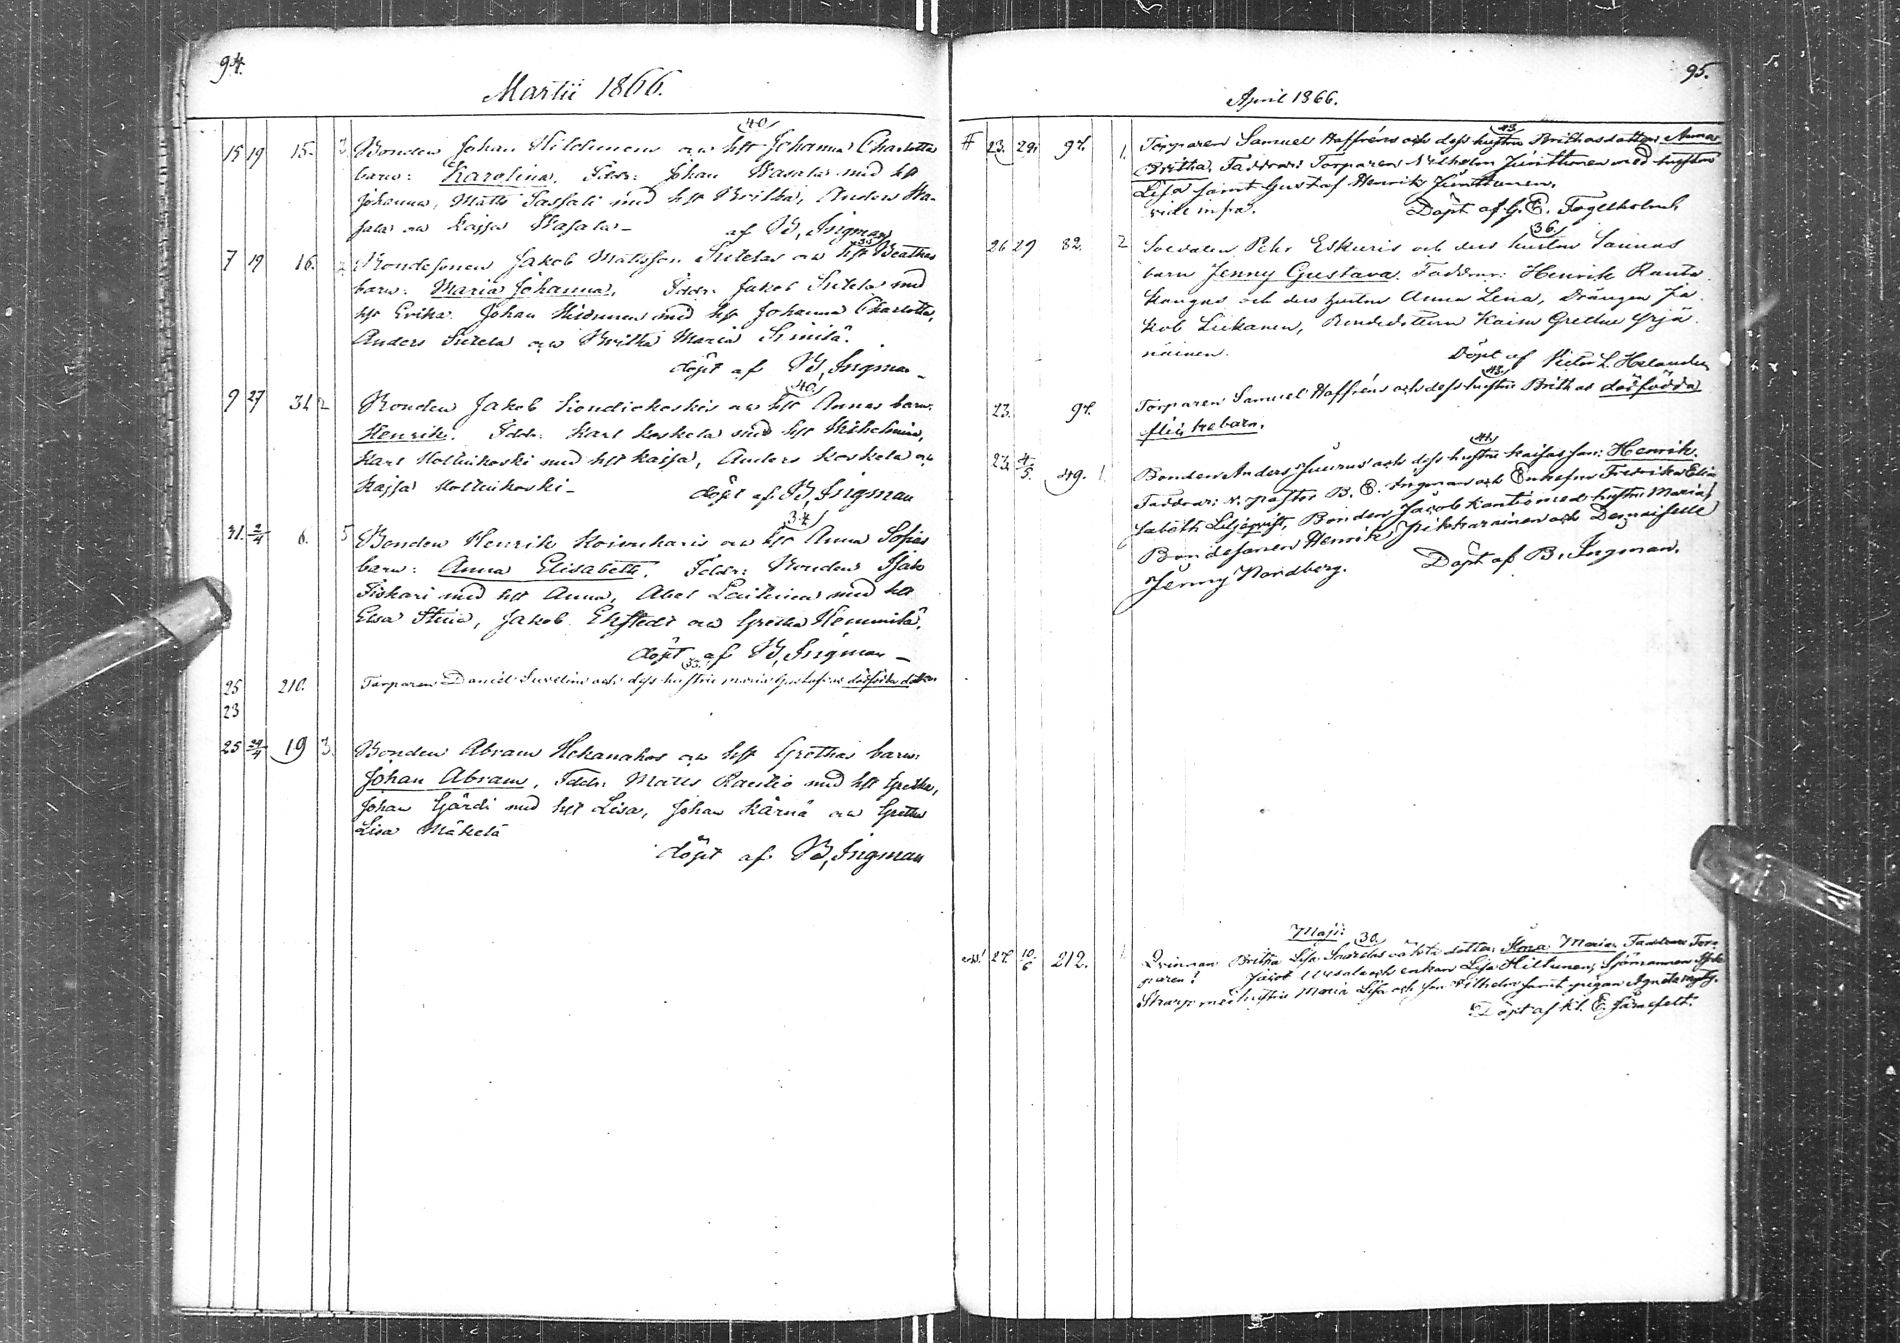 94.
Martii 1866.
40
15 19 15. 3 Bonden Johan Hildunen och hst Johanna Charlotta
barn: Karolina, Fddr: Johan Wasala med hst
Johanna, Matts Sassali med hst Britha, Anders Wa-
sala och Kajsa Wasala - af B, Ingman
7 19 16. Bondesonen Jakob Mattsson Sutelas och hst Beathas
barn: Maria Johanna. Fddr: Jakob Sutela med
hst Erika. Johan Hildunen med hst Johanna Charlotta,
Anders Sutela och Britha Maria Simila.
döpt af B, Ingman -
40
9 27 31 2 Bonden Jakob och hst Annas barn:
Henrik. Fddr: Karl Koskela med hst Wilhelmina,
Karl med hst Kajsa, Anders Koskela och
Kajsa
döpt af B, Ingman
34
31. 2/4 6. 5 Bonden Henrik Koivuharis och hst Anna Sofias
barn: Anna Elisabeth. Fddr: Bonden Isak
Fiskari med hst Anna, Abel med hst
Elsa Stina, Jakob Ekstedt och Gretha Hemmilä.
döpt af B, Ingman -
33.
25 210. Torparen Daniel och dess hustru Maria dödfödda dotter
23
25 24/4 19 3. Bonden Abram Hekanahos och hst Grethas barn:
Johan Abram. Fddr: Matts Rautio med hst Gretha,
Johan med hst Lisa, Johan Kärnä och Gretha
Lisa Mäkelä
döpt af B, Ingman
95.
April 1866.
43.
# 23. 29. 97. 1. Torparen Samuel Haffréns och dess hustru Brithas dotter Anna
Britha, Faddrar: Torparen Wilhelm Junttunen med hustru
Lisa samt Gustaf Henrik Junttunen.
vide infra. Döpt af G. E. Fogelholm.
36.
26 29 82. 2 Soldaten Pehr Eskuris och dess hustru Sannas
barn Jenny Gustava. Faddrar: Henrik Ranta
kangas och dess hustru Anna Lena, Drängen Ja-
kob Liikanen, Bondedottern Kaisa Gretha Yrjä-
näinen.
Döpt af Victor L. Helander
43.
23. 97. Torparen Samuel Haffréns och dess hustru Brithas dödfödda
flickebarn.
41.
23. 4/5. 49. 1. Bonden Anders Juurus och dess hustru Kaisas son: Henrik.
Faddrar: V. Pastor B. E. Ingman och Enkefru Fredrika Eli-
sabeth Liljeqvist, Bonden Jacob Kantio med hustru Maria,
Bondesonen Henrik och Demoiselle
Jenny Nordberg. Döpt af B. Ingman.
Maji:
30.
27. 10/6 212. Qvinnan Britha Lisa oäkta dotter, Stina Maria. Faddrar Tor-
paren! Jacob och enkan Lisa Hiltunen, Sjömannen
Skarp med hustru Maria Lisa och son Wilhelm samt pigan Agneta
Döpt af Kl. E. Järnefelt.